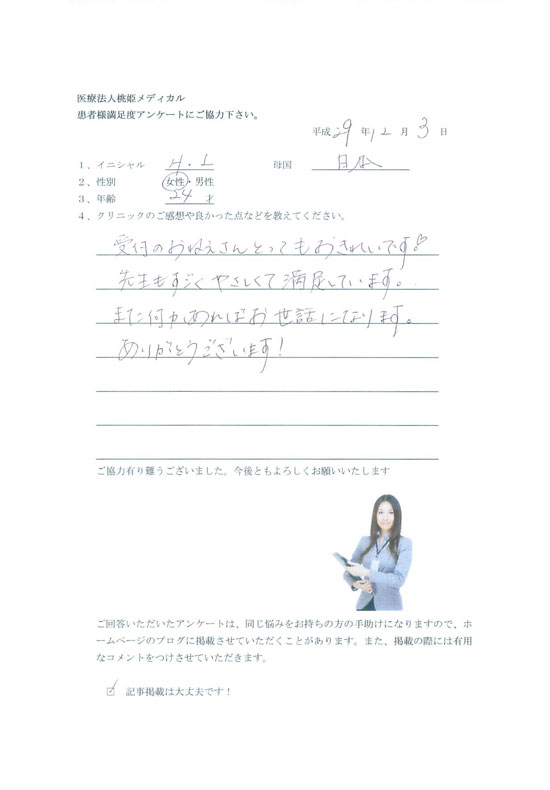 医療法人桃姫メディカル
患者様満足度アンケートにご協力下さい。
平成 29 年 12 月 3 日
1、イニシャル H.I 母国 日本
2、性別 女性・男性
3、年齢 24 才
4、クリニックのご感想や良かった点などを教えてください。
受付のおねえさんとってもおきれいです♡
先生もすごくやさしくて満足しています。
また何かあればお世話になります。
ありがとうございます!
ご協力有り難うございました。今後ともよろしくお願いいたします
ご回答いただいたアンケートは、同じ悩みをお持ちの方の手助けになりますので、ホ
ームページのブログに掲載させていただくことがあります。また、掲載の際には有用
なコメントをつけさせていただきます。
☑ 記事掲載は大丈夫です!